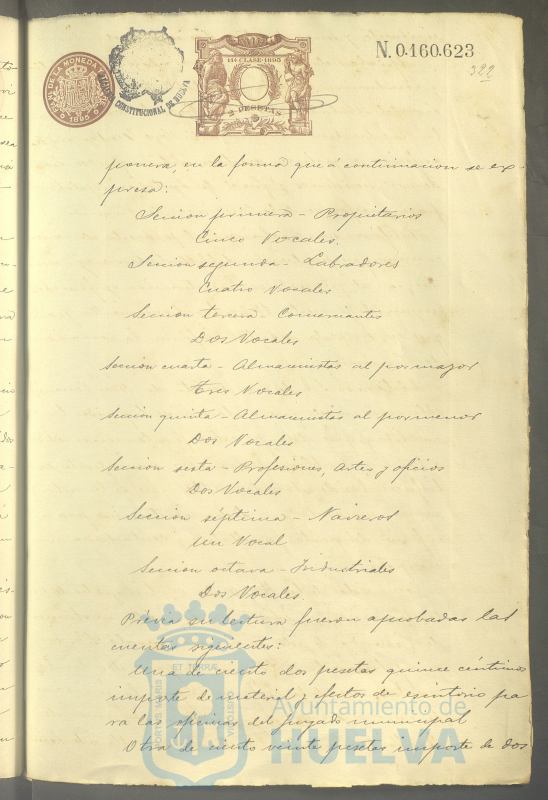 N. 0.160.623
322
11ª CLASE - 1895
2 PESETAS
CONSTITUCIONAL DE HUELVA
DE LA MONEDA
1895
ponera, en la forma que á continuacion se ex-
presa:
Seccion primera - Propietarios
Cinco Vocales.
Seccion segunda - Labradores
Cuatro Vocales
Seccion tercera - Comerciantes
Dos Vocales
Seccion cuarta - Almacenistas al por mayor
Tres Vocales
Seccion quinta - Almacenistas al por menor
Dos Vocales
Seccion sesta - Profesiones, Artes y oficios
Dos Vocales
Seccion séptima - Navieros
Un Vocal
Seccion octava - Industriales
Dos Vocales.
Prévia su lectura fueron aprobadas las
cuentas siguientes:
Una de ciento dos pesetas quince céntimos
importe de material y efectos de escritorio pa
ra las oficinas del juzgado municipal
Otra de ciento veinte pesetas importe de dos
PORTUS MARIS
ET TERRÆ
CUSTODIA
Ayuntamiento de
HUELVA